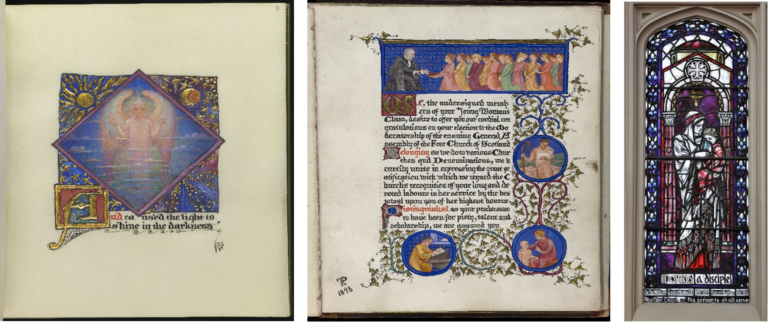 And ra used the light to
shine in the darkness
We, the undersigned memb
ers of your Young Womans
Class, desire to offer you our cordial con
gratulations on your election to the Mo
deratorship of the ensuing General A
ssembly of the Free Church of Scotland
Belonging as we do to various Chur
ches and Denominations, we h
eartily unite in expressing the great gr
atification with which we regard the C
hurch's recognition of your long and de
voted labours in her service by the bes
towal upon you of her highest honour
Distinguished as your predecesso
rs have been for piety, talent and
scholarship, we are assured you
1898
DORCAS a disciple
his servants shall serve